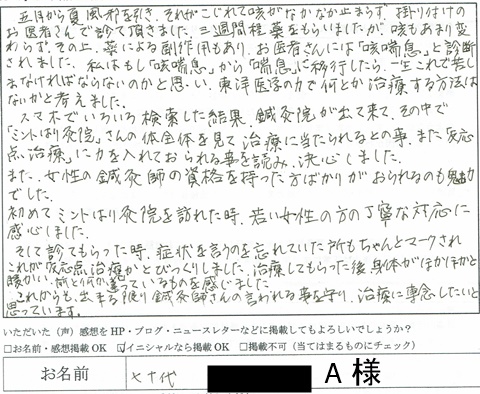 五月から夏風邪を引き、それがこじれて咳がなかなか止まらず、掛り付けの
お医者さんで診て頂きました。三週間程薬をもらいましたが咳もあまり変
わらず、その上、薬による副作用もあり、お医者さんには「咳喘息」と診断
されました。私はもし「咳喘息」から「喘息」に移行したら、一生これで苦し
まなければならないのかと思い、東洋医学の力で何とか治療する方法は
ないかと考えました。
スマホでいろいろ検索した結果、鍼灸院が出て来て、その中で
「ミントはり灸院」さんの体全体を見て治療に当たられるとの事、また反応
点治療」に力を入れておられる事を読み、決心しました。
また、女性の鍼灸師の資格を持った方ばかりがおられるのも魅力
でした。
初めてミントはり灸院を訪れた時、若い女性の方の丁寧な対応に
感心しました。
そして診てもらった時、症状を言うのを忘れていた所もちゃんとマークされ
これが反応点治療かとびっくりしました。治療してもらった後身体がほかほかと
暖かい、前と何か違っているものを感じました。
これからも、出来る限り鍼灸師さんの言われる事を守り、治療に専念したいと
思っています。
いただいた（声）感想をHP・ブログ・ニュースレターなどに掲載してもよろしいでしょうか？
□お名前・感想掲載OK ☑イニシャルなら掲載OK □掲載不可（当てはまるものにチェック）
お名前 七十代 A様